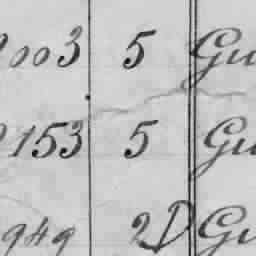 003 5 Gu
153 5 Gu
949 2D Gu